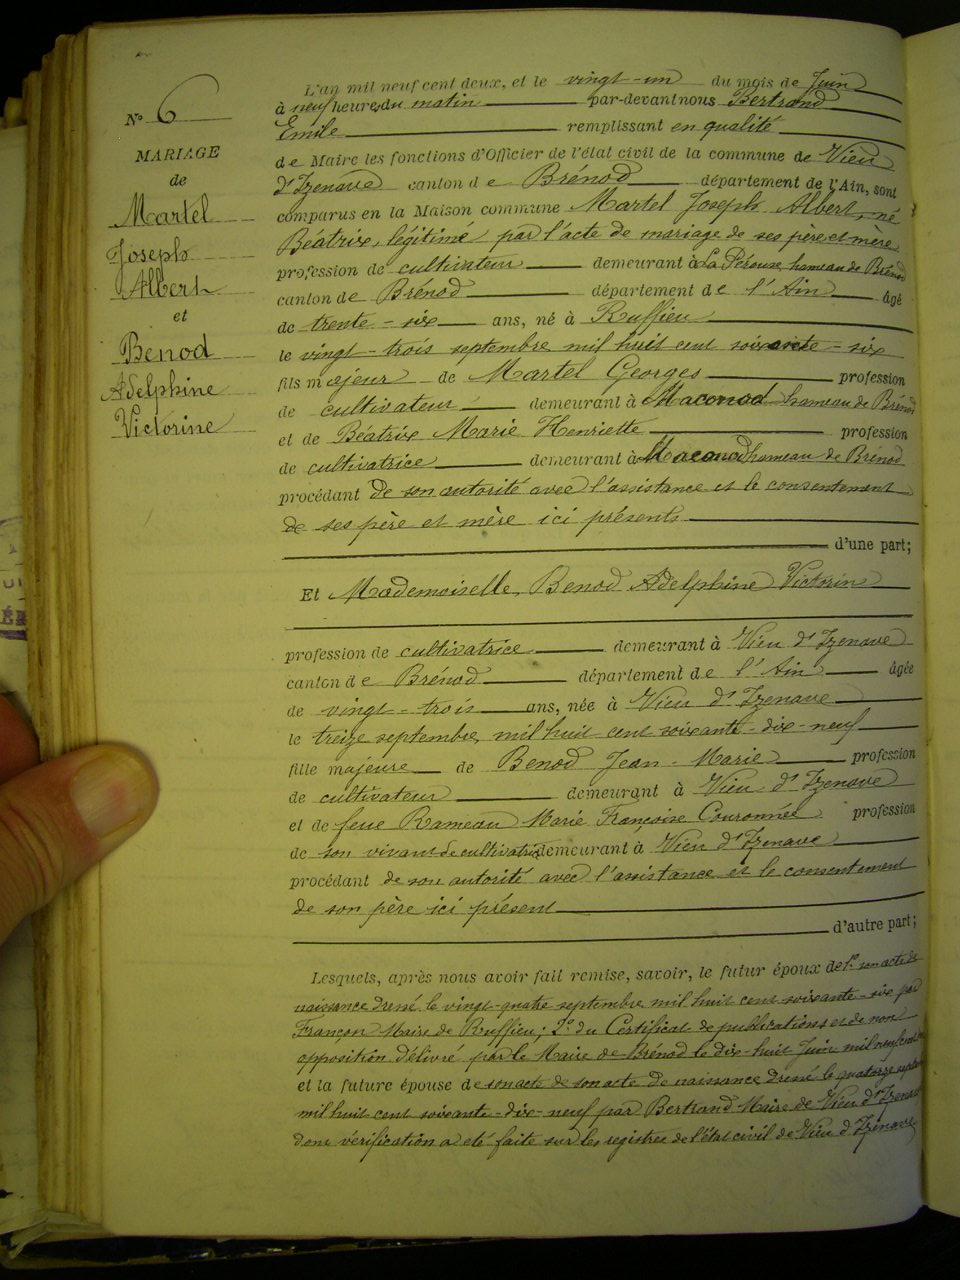 N° 6
MARIAGE
de
Martel
Joseph
Albert
et
Benod
Adelphine
Victorine
L'an mil neuf cent deux, et le vingt-un du mois de Juin
à neuf heures du matin par-devant nous Bertrand
Emile remplissant en qualité
de Maire les fonctions d'Officier de l'état civil de la commune de Vieu
d'Izenave canton de Brénod département de l'Ain, sont
comparus en la Maison commune Martel Joseph Albert, né
Béatrix, légitimé par l'acte de mariage de ses père et mère
profession de cultivateur demeurant à La Pérouse, hameau de Brénod
canton de Brénod département de l'Ain âgé
de trente-six ans, né à Ruffieu
le vingt-trois septembre mil huit cent soixante-six
fils majeur de Martel Georges profession
de cultivateur demeurant à Maconod hameau de Brénod
et de Béatrix Marie Henriette profession
de cultivatrice demeurant à Maconod hameau de Brénod
procédant de son autorité avec l'assistance et le consentement
de ses père et mère ici présents
d'une part;
Et Mademoiselle, Benod Adelphine Victorine
profession de cultivatrice demeurant à Vieu d'Izenave
canton de Brénod département de l'Ain âgée
de vingt-trois ans, née à Vieu d'Izenave
le treize septembre mil huit cent soixante-dix-neuf
fille majeure de Benod Jean-Marie profession
de cultivateur demeurant à Vieu d'Izenave
et de feue Rameau Marie Françoise Couronnée profession
de son vivant de cultivatrice demeurant à Vieu d'Izenave
procédant de son autorité avec l'assistance et le consentement
de son père ici présent
d'autre part;
Lesquels, après nous avoir fait remise, savoir, le futur époux de 1° son acte de
naissance dressé le vingt-quatre septembre mil huit cent soixante-six par
Françon Maire de Ruffieu; 2° du Certificat de publications et de non
opposition délivré par le Maire de Brénod le dix-huit Juin mil neuf cent
et la future épouse de son acte de son acte de naissance dressé le quatorze septembre
mil huit cent soixante-dix-neuf par Bertrand Maire de Vieu d'Izenave
dont vérification a été faite sur les registres de l'état civil de Vieu d'Izenave